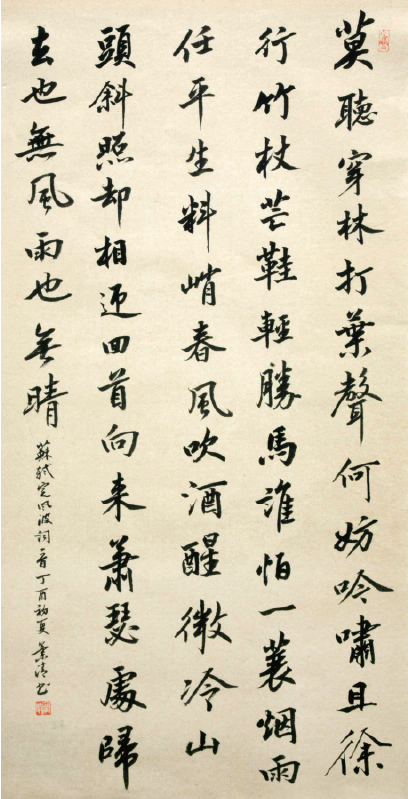 莫聽穿林打葉聲何妨吟嘯且徐
行竹杖芒鞋輕勝馬誰怕一蓑烟雨
任平生料峭春風吹酒醒微冷山
頭斜照却相迎回首向来蕭瑟處歸
去也無風雨也無晴
蘇軾定風波詞一首丁酉初夏葉清书